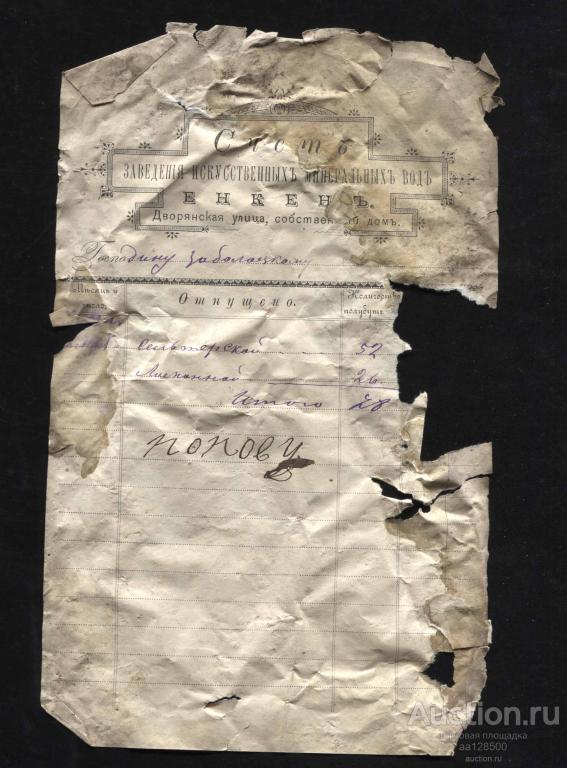 Счетъ
ЗАВЕДЕНІЯ ИСКУССТВЕННЫХЪ МИНЕРАЛЬНЫХЪ ВОДЪ
ЕНКЕНЪ.
Дворянская улица, собственный домъ.
Господину Заболоцкому
Мѣсяцъ и
число.
Отпущено.
Количество
полубут.
Сельтерской 52
Лимонной 26
Итого 78
попову
Auction.ru
торговая площадка
aa128500
auction.ru